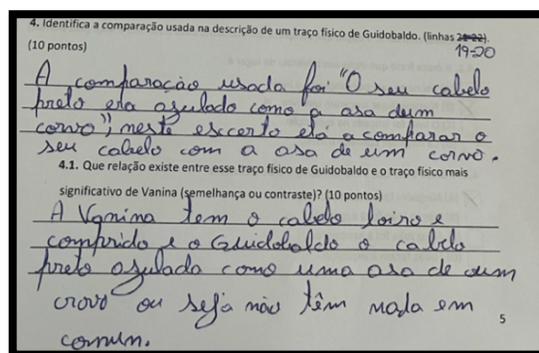 4. Identifica a comparação usada na descrição de um traço físico de Guidobaldo. (linhas 21-22).
19-20
(10 pontos)
A comparação usada foi "O seu cabelo
preto era azulado como a asa dum
corvo", neste exccerto está a comparar o
seu cabelo com a asa de um corvo.
4.1. Que relação existe entre esse traço físico de Guidobaldo e o traço físico mais
significativo de Vanina (semelhança ou contraste)? (10 pontos)
A Vanina tem o cabelo loiro e
comprido e o Guidobaldo o cabelo
preto azulado como uma asa de um
crovo ou seja não têm nada em
comum.
5